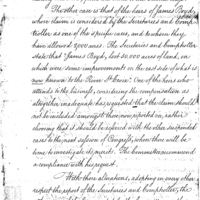 The other case is that of the heirs of James Boyd,
whose claim is considered by the Secretaries and Comp-
troller as one of that specific cases, and to whom they
have allowed 3,000 acres. The Secretaries and Comptroller
state that James Boyd, lost 50,000 acres of land, on
which were some improvements on the east side of what is
now known to the River St Croix. One of the heirs who
attends to his business, considering the compensation as
altogether inadequate has requested that the claim should
not be included amongst those now reported on, rather
choosing that it should be referred with the other suspended
cases to the next session of Congress, when there will be
time to investigate its merits. The Committee recommend
a compliance with his request.
With these alterations, adopting in every other
respect the report of the Secretaries and Comptroller, the